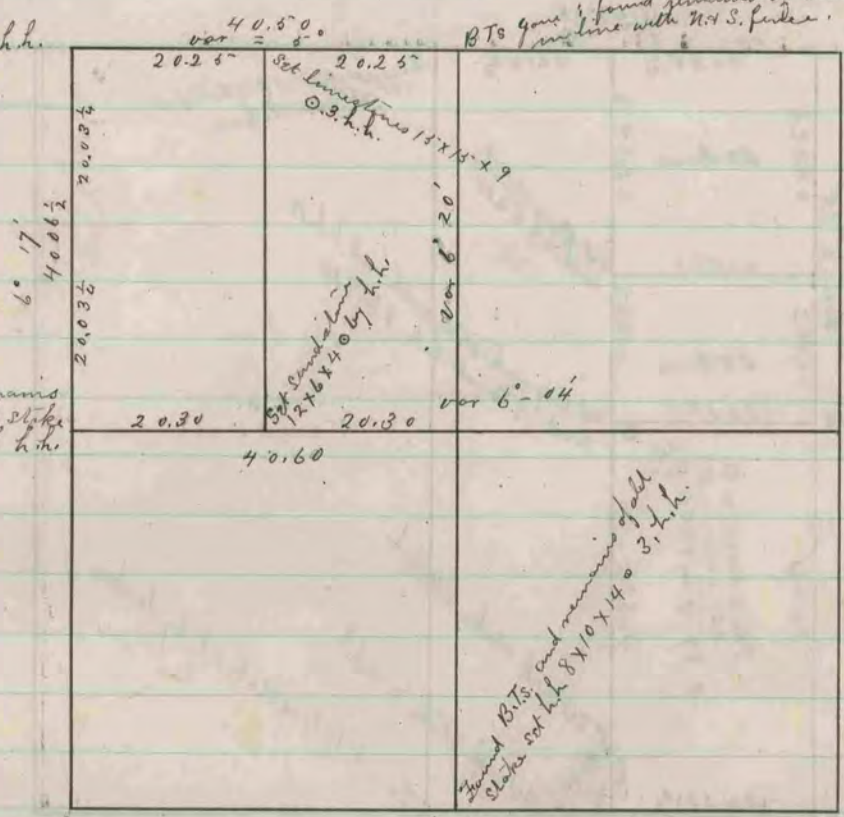 40.50
var = 5°
B.Ts gone & found
in line with N. & S. fence.
h.h.
20.25
20.25
Set limestones 15 x 15 x 9
⊙ 3. h.h.
20.03¼
20.03¼
6° 17'
40.06½
var 6° 20'
Set Sandstone
12 x 6 x 4 ⊙ by h.h.
var 6° - 04'
stake
h.h.
20.30
20.30
40.60
Found B.Ts. and remains of old
stake set h.h 8 x 10 x 14 ⊙ 3, h.h.